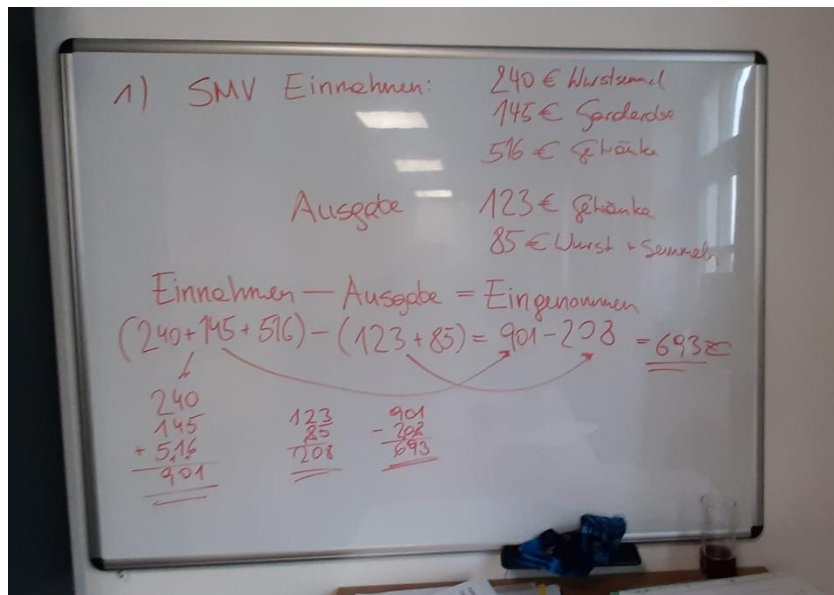 1) SMV Einnahmen: 240 € Wurstsemmel
145 € Garderobe
516 € Getränke
Ausgabe 123 € Getränke
85 € Wurst + Semmeln
Einnahmen − Ausgabe = Eingenommen
(240+145+516) − (123+85) = 901 − 208 = 693
240
145
+ 516
901
123
85
208
901
- 208
693